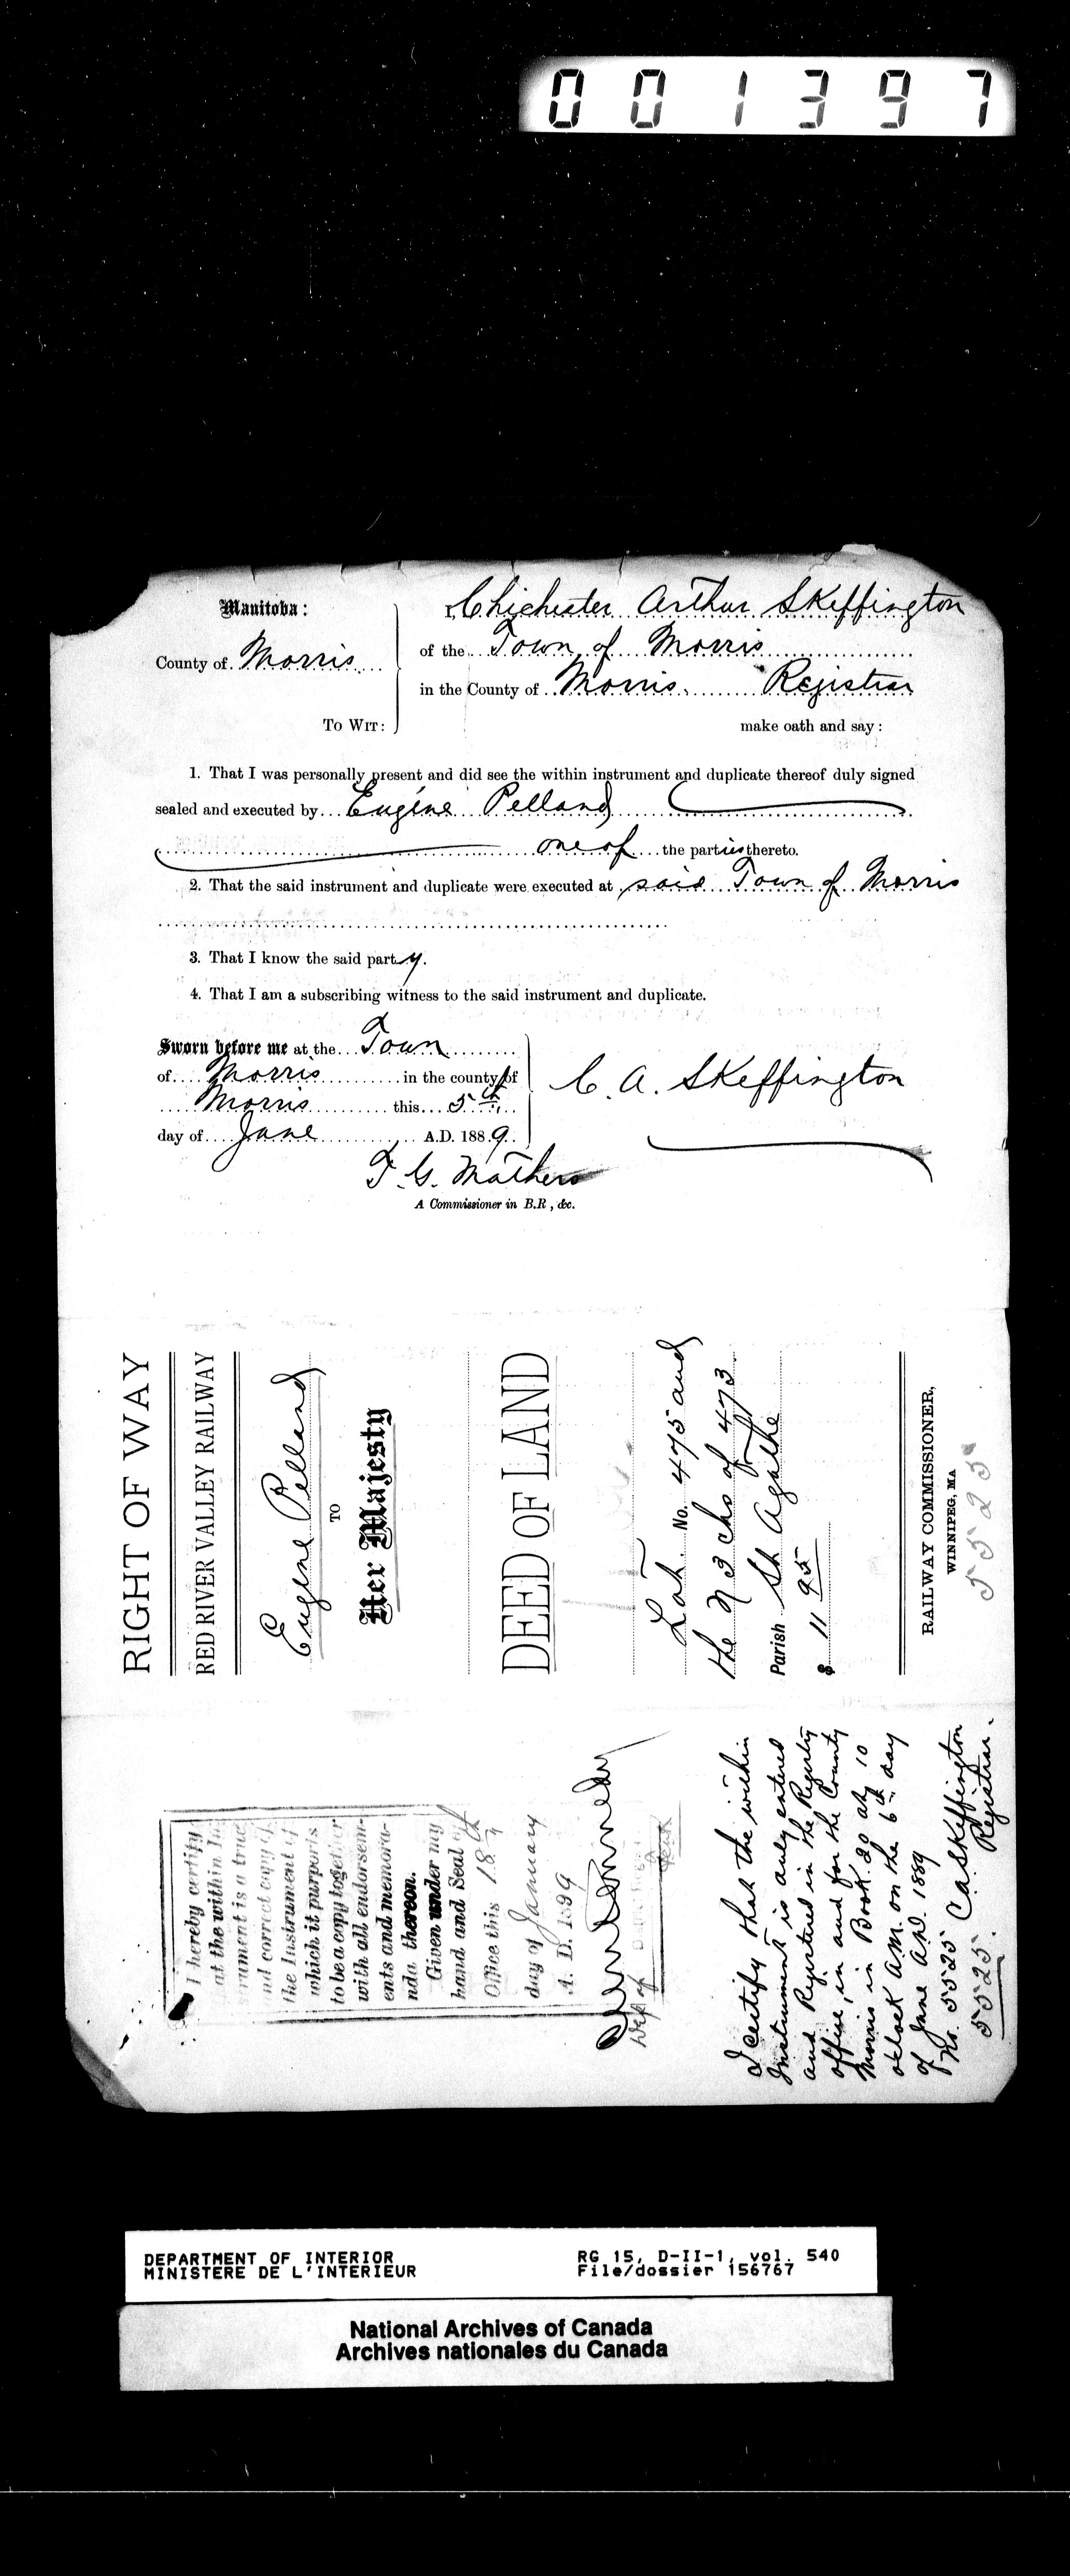 001397
Manitoba:
County of Morris
To Wit:
I, Chichester Arthur Skeffington
of the Town of Morris
in the County of Morris, Registrar
make oath and say:
1. That I was personally present and did see the within instrument and duplicate thereof duly signed
sealed and executed by Eugéne Pelland
one of the parties thereto.
2. That the said instrument and duplicate were executed at said Town of Morris
3. That I know the said party.
4. That I am a subscribing witness to the said instrument and duplicate.
Sworn before me at the Town
of Morris in the county of
Morris this 5th
day of June A.D. 1889.
C. A. Skeffington
T. G. Mathers
A Commissioner in B.R, &c.
RIGHT OF WAY
RED RIVER VALLEY RAILWAY
Eugene Pelland
TO
Her Majesty
DEED OF LAND
Lot No. 475 and
the N 3 chs of 473
Parish St Agathe
$ 11 95
RAILWAY COMMISSIONER,
WINNIPEG, MA
5525
I hereby certify
at the within In
rument is a true
nd correct copy of
the Instrument of
which it purports
to be a copy together
with all endorsem-
ents and memora-
nda thereon.
Given under my
hand and Seal of
Office this 18th
day of January
A. D. 1899
Dep of
I certify that the within
Instrument is duly entered
and Registered in the Registry
office, in and for the County
Morris in Book 20 at 10
oclock A.M. on the 6th day
of June A.D. 1889
No. 5525 C A Skeffington
5525. Registrar.
DEPARTMENT OF INTERIOR
MINISTERE DE L'INTERIEUR
RG 15, D-II-1, vol. 540
File/dossier 156767
National Archives of Canada
Archives nationales du Canada